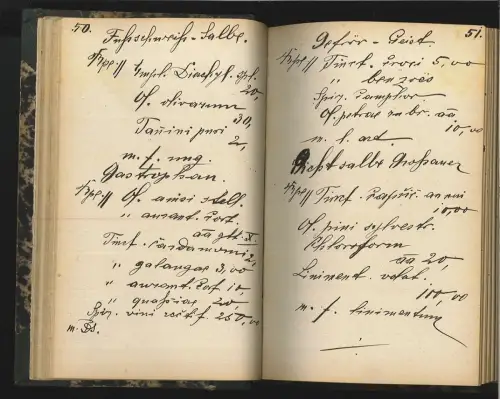 50.
Fußschweiß-Salbe.
Rpe// Empl. Diachyl. spl.
20,
Ol. olivarum
30,
Tanini puri
2,
m. f. ung.
Gastrophan.
Rpe// Ol. anisi stell.
" aurant. cort.
aa gtt. X.
Tinct. cardamomi 2,
" galangae 3,00
" aurant. cort 10,
" quassiae 20
Spir. vini rectf. 250,00
m. Ds.
51.
Gefrör-Geist
Rpe// Tinct. croci 5,00
" benzoes
Spir. camphor.
Ol. petrae rubr. aa
10,00
m. l. art.
Gichtsalbe
Rpe// Tinct. capsic. annui
10,00
Ol. pini sylvestr.
Chloroform
aa 20,
Liniment. volat.
100,00
m. f. linimentum